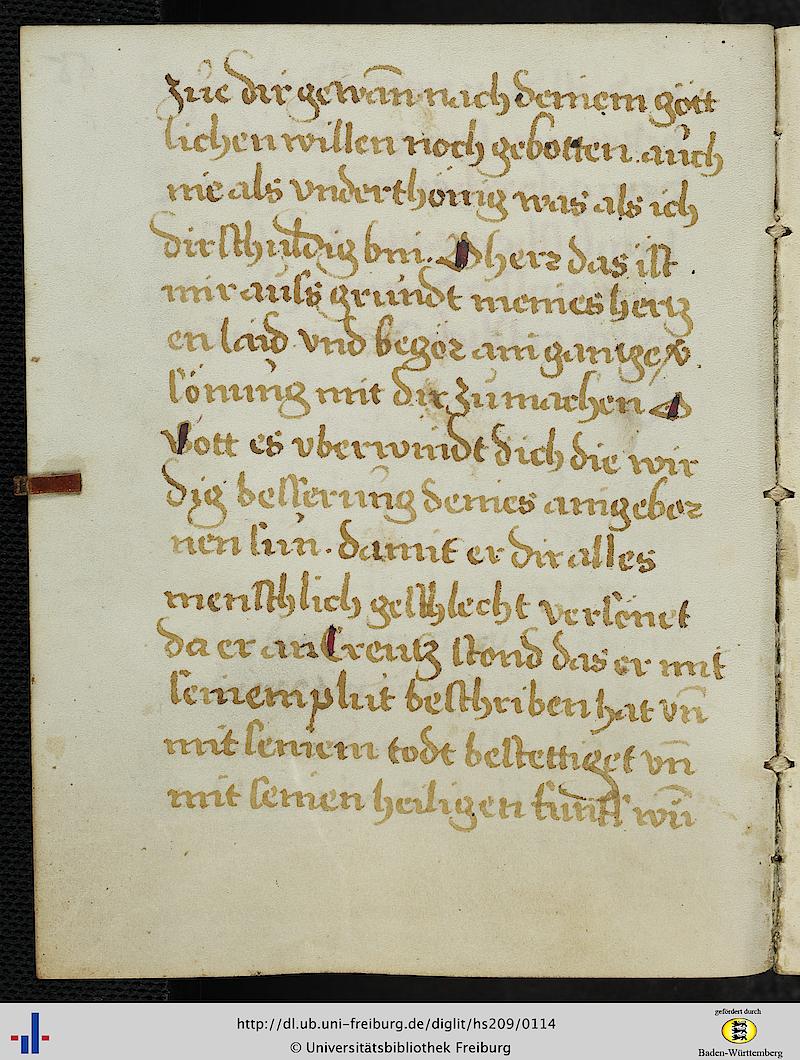 zůe dir gewan̄ nach deinem gött
lichen willen noch gebotten. auch
nie als vnderthönig was als ich
dir schuldig bin. O herr das ist
mir auſs grundt meines hertz
en laid vnd begör ain gantze v̓
ſönung mit dir zu machen O
Gott es vberwindt dich die wir
dig beſſerung deines aingebor
nen ſun. damit er dir alles
menſchlich geſchlecht verſönet
da er an Creutz ſtond das er mit
ſeinem plut beſchriben hat vn̄
mit ſeinem todt beſtettiget vn̄
mit ſeinen heiligen funff wūn
http://dl.ub.uni-freiburg.de/diglit/hs209/0114
© Universitätsbibliothek Freiburg
gefördert durch
Baden-Württemberg